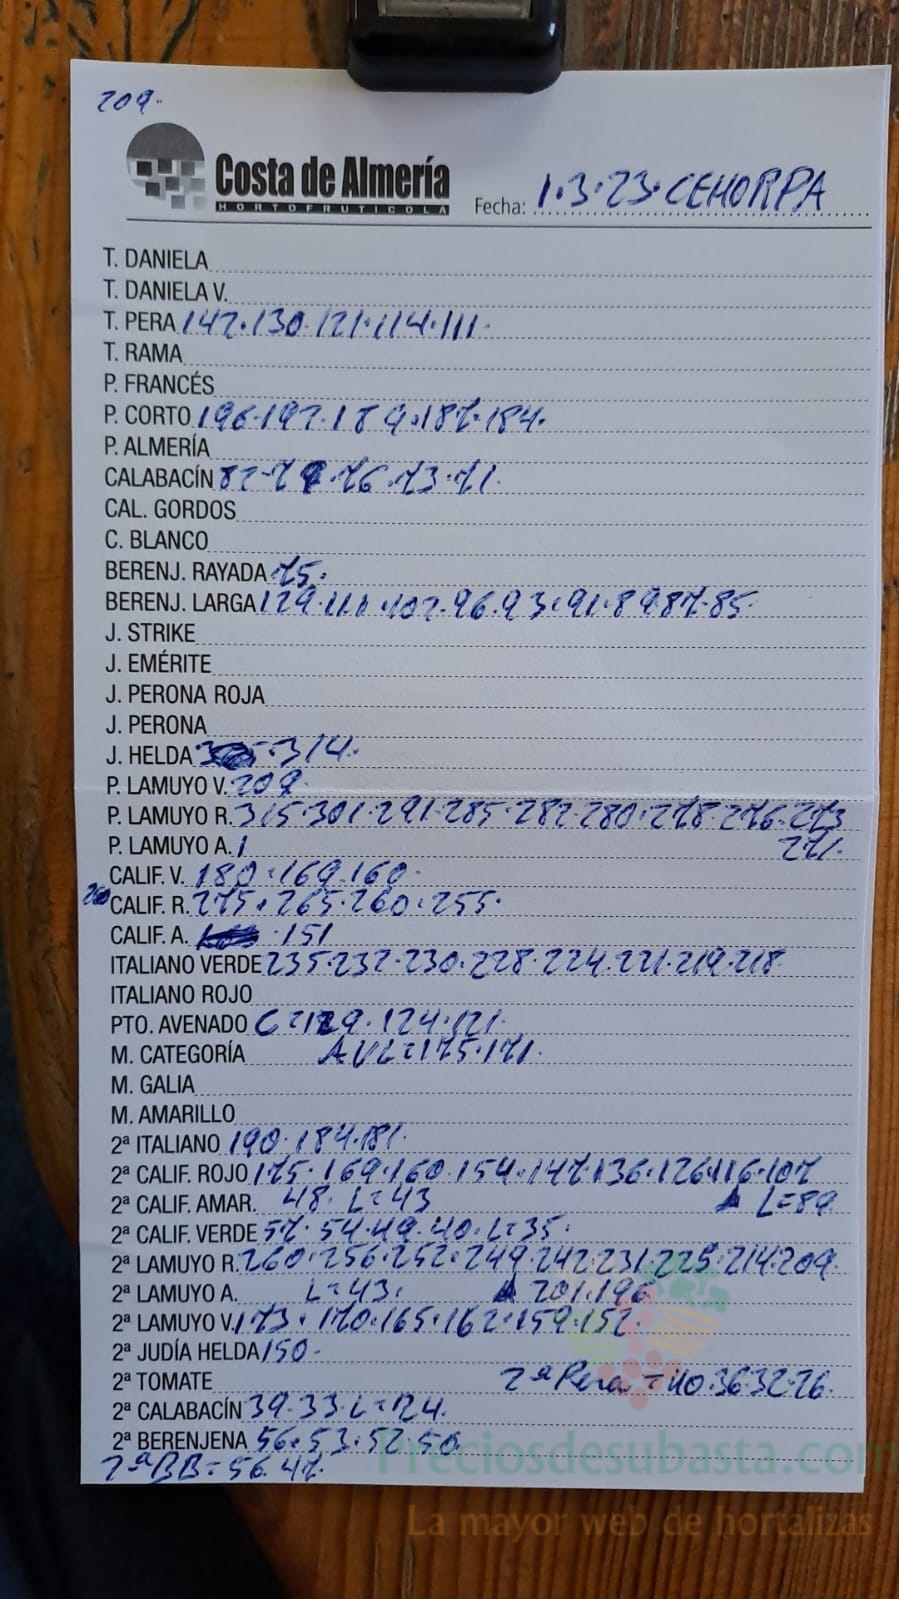 209.
Costa de Almería
HORTOFRUTICOLA
Fecha: 1.3.23. CEHORPA
T. DANIELA
T. DANIELA V.
T. PERA 142.130.121.114.111.
T. RAMA
P. FRANCÉS
P. CORTO 196.192.189.187.184.
P. ALMERÍA
CALABACÍN 82.79.76.73.71.
CAL. GORDOS
C. BLANCO
BERENJ. RAYADA 75.
BERENJ. LARGA 129.111.102.96.93.91.89.87.85.
J. STRIKE
J. EMÉRITE
J. PERONA ROJA
J. PERONA
J. HELDA 314.
P. LAMUYO V. 209.
P. LAMUYO R. 315.301.291.285.282.280.278.276.273
P. LAMUYO A. 271.
CALIF. V. 180.169.160.
CALIF. R. 275.265.260.255.
CALIF. A. 151
ITALIANO VERDE 235.232.230.228.224.221.219.218
ITALIANO ROJO
PTO. AVENADO C=129.124.121.
M. CATEGORÍA AVL=175.171.
M. GALIA
M. AMARILLO
2ª ITALIANO 190.184.181.
2ª CALIF. ROJO 175.169.160.154.147.136.126.116.107
2ª CALIF. AMAR. 48. L=43 L=89
2ª CALIF. VERDE 57.54.49.40.L=35.
2ª LAMUYO R. 260.256.252.249.242.231.225.214.209.
2ª LAMUYO A. L=43. 201.196
2ª LAMUYO V. 173.170.165.162.159.152.
2ª JUDÍA HELDA 150.
2ª TOMATE 2ª Pera=40.36.32.26.
2ª CALABACÍN 39.33.L=24.
2ª BERENJENA 56.53.52.50.
2ªBB=56.47.
Preciosdesubasta.com
La mayor web de hortalizas